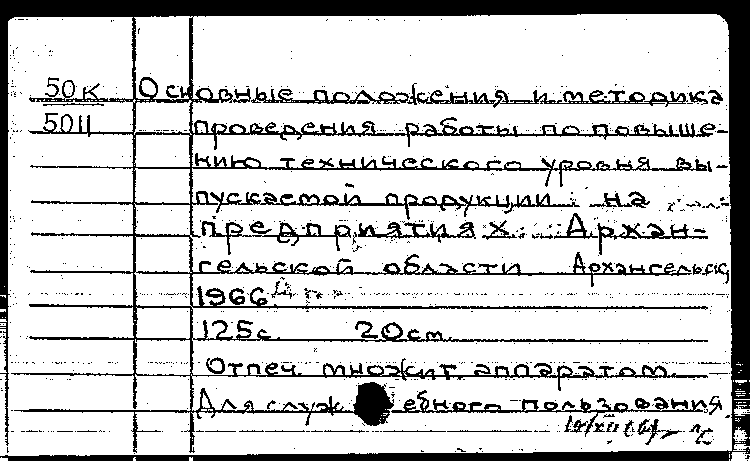 50к Основные положения и методика
5011 проведения работы по повыше-
нию технического уровня вы-
пускаемой продукции на
предприятиях Архан-
гельской области Архангельск,
1966
125с. 20см.
Отпеч. множит. аппаратом.
Для служебного пользования